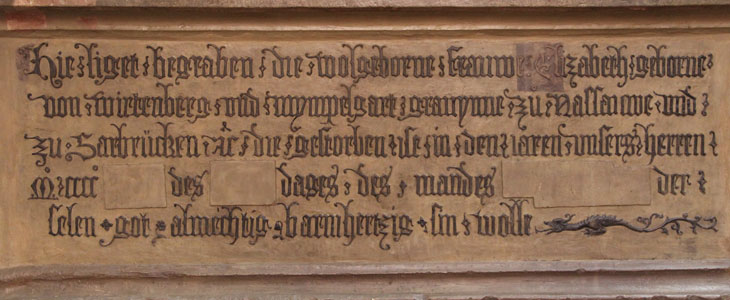 Hie · liget · begraben · die · wolgeborne · frauwe · Elizabeth · geborne
von · wirtenberg · vnd · mympelgart · grauynne · zu · Nassauwe · vnd
zu · Sarbrücken · &c · die · gestorben · ist · in · den · iaren · vnsers · herren
M · cccc des dages · des · mandes der
selen · got · almechtig · barmhertzig · sin · wolle